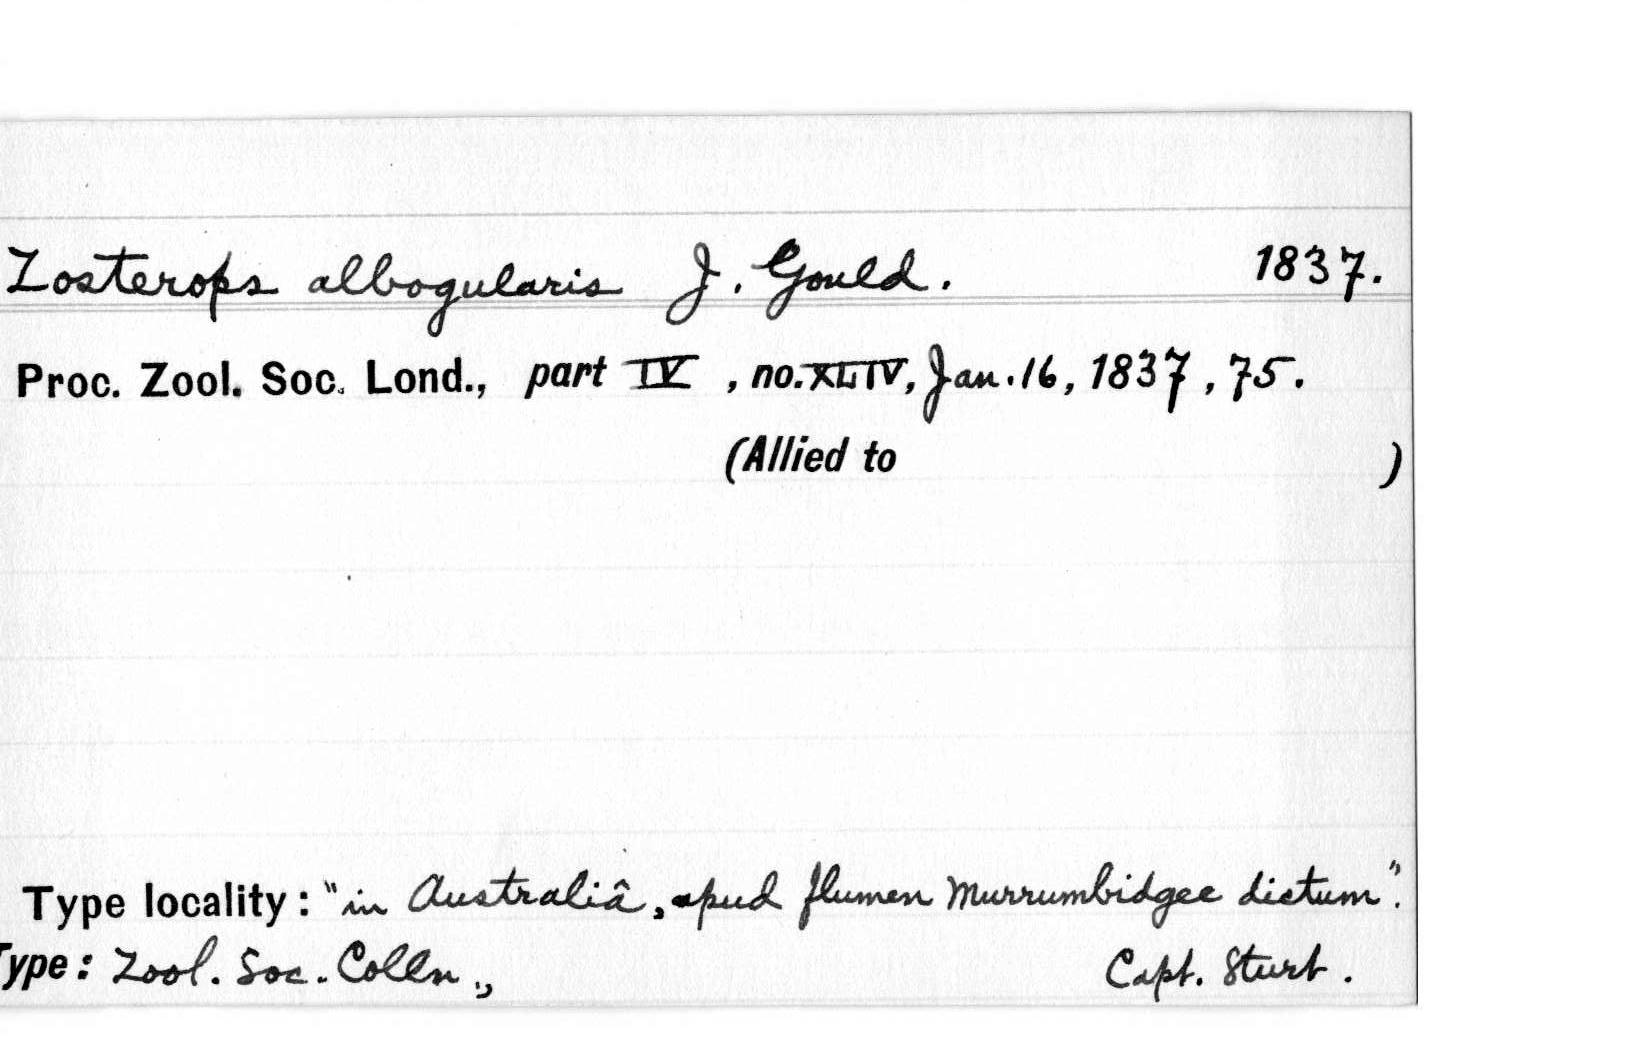 Zosterops albogularis J. Gould. 1837.
Proc. Zool. Soc. Lond., part IV, no. XLIV, Jan. 16, 1837, 75.
(Allied to )
Type locality: "in Australiâ, apud flumen Murrumbidgee dictum".
Type: Zool. Soc. Colln., Capt. Sturt.